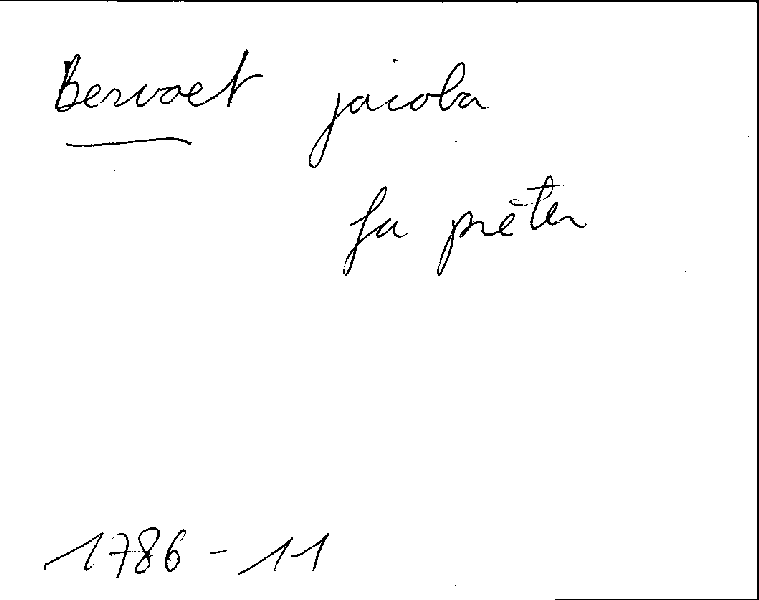 Bervoet jacoba
fa prèter
1786 - 11